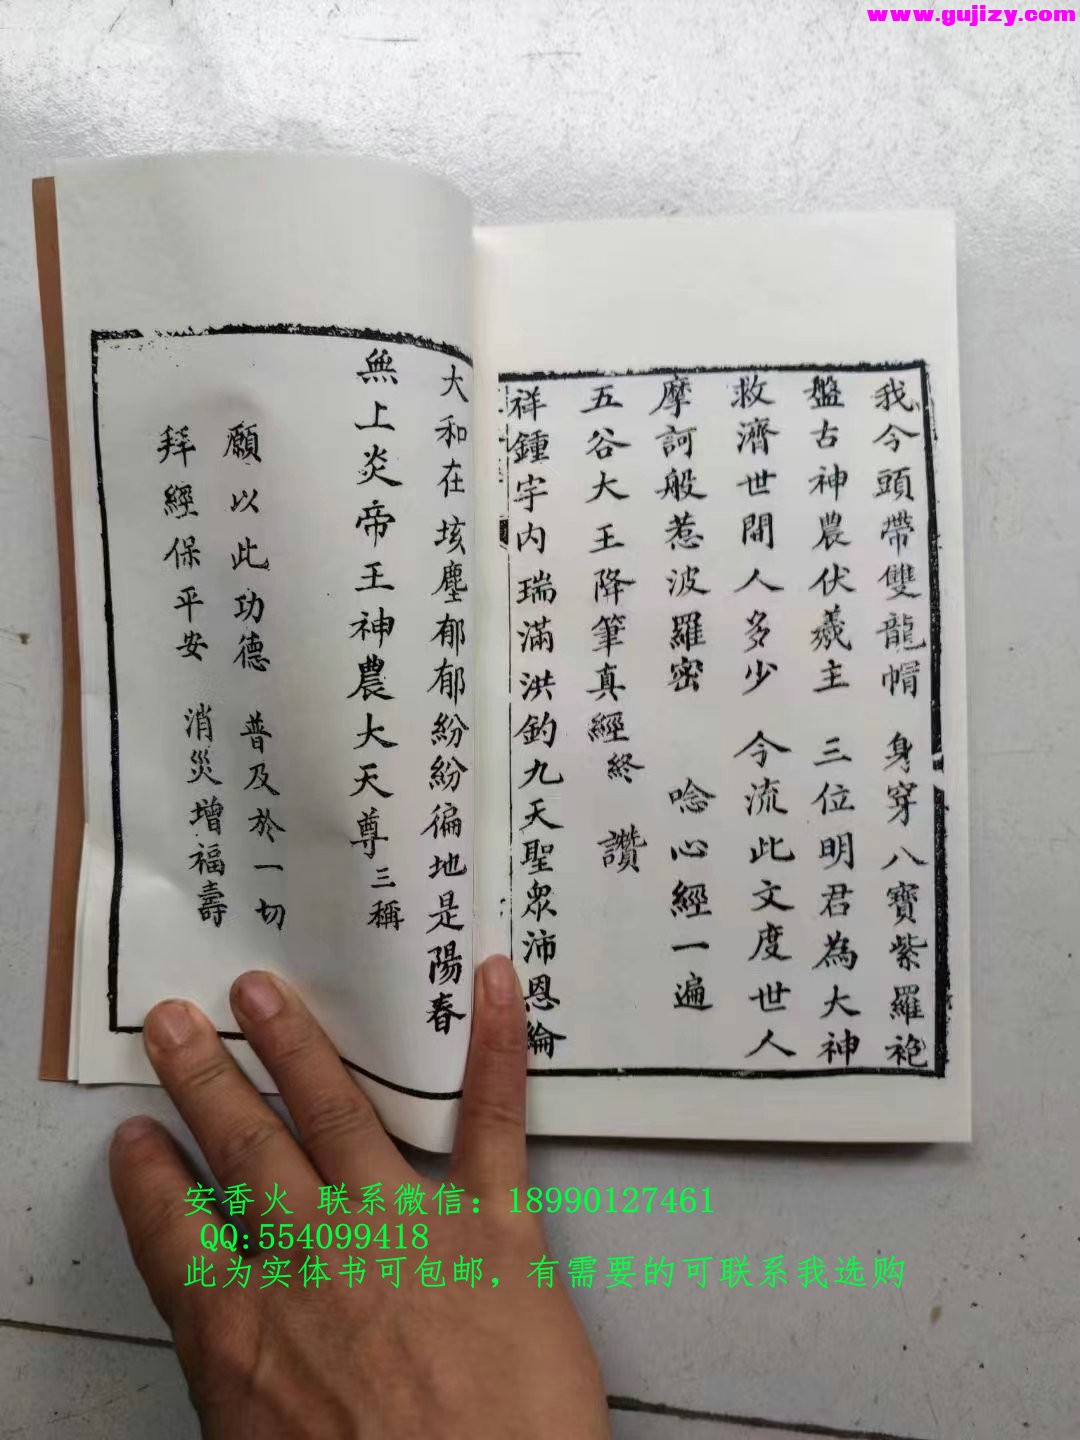 www.gujizy.com
我今頭帶雙龍帽 身穿八寶紫羅袍
盤古神農伏羲主 三位明君為大神
救濟世間人多少 今流此文度世人
摩訶般惹波羅密 唸心經一遍
五谷大王降筆真經終 讚
祥鍾宇内瑞滿洪鈞九天聖眾沛恩綸
大和在垓塵郁郁紛紛徧地是陽春
無上炎帝王神農大天尊三稱
願以此功德 普及於一切
拜經保平安 消災增福壽
安香火 联系微信：18990127461
QQ:554099418
此为实体书可包邮，有需要的可联系我选购